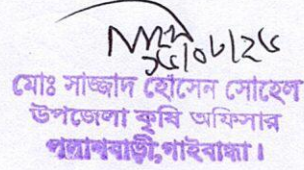 ১৫/০৮/২৫
মোঃ সাজ্জাদ হোসেন সোহেল
উপজেলা কৃষি অফিসার
পলাশবাড়ী,গাইবান্ধা।